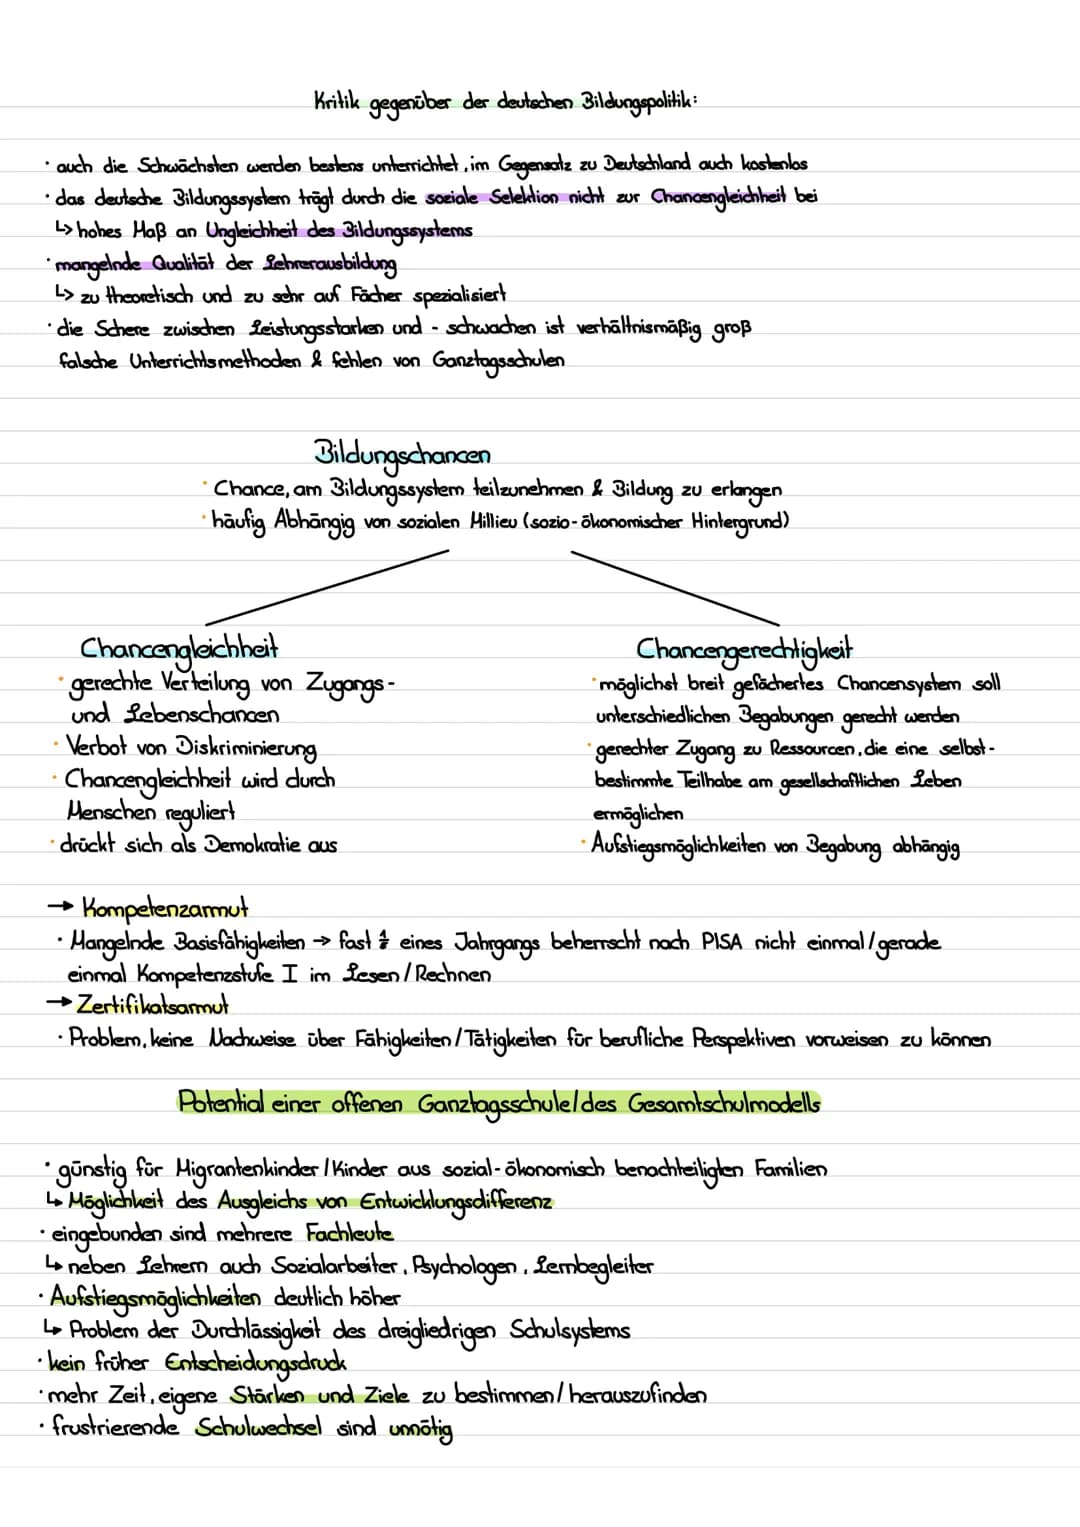 Kritik gegenüber der deutschen Bildungspolitik:
· auch die Schwächsten werden bestens unterrichtet, im Gegensatz zu Deutschland auch kostenlos
· das deutsche Bildungssystem trägt durch die soziale Selektion nicht zur Chancengleichheit bei
↳ hohes Maß an Ungleichheit des Bildungssystems
· mangelnde Qualität der Lehrerausbildung
↳ zu theoretisch und zu sehr auf Fächer spezialisiert
· die Schere zwischen Leistungsstarken und - schwachen ist verhältnismäßig groß
falsche Unterrichtsmethoden & fehlen von Ganztagsschulen
Bildungschancen
· Chance, am Bildungssystem teilzunehmen & Bildung zu erlangen
· häufig Abhängig von sozialen Millieu (sozio-ökonomischer Hintergrund)
Chancengleichheit
· gerechte Verteilung von Zugangs-
und Lebenschancen
· Verbot von Diskriminierung
· Chancengleichheit wird durch
Menschen reguliert
· drückt sich als Demokratie aus
Chancengerechtigkeit
· möglichst breit gefächertes Chancensystem soll
unterschiedlichen Begabungen gerecht werden
· gerechter Zugang zu Ressourcen, die eine selbst-
bestimmte Teilhabe am gesellschaftlichen Leben
ermöglichen
· Aufstiegsmöglichkeiten von Begabung abhängig
→ Kompetenzarmut
· Mangelnde Basisfähigkeiten → fast eines Jahrgangs beherrscht nach PISA nicht einmal/gerade
einmal Kompetenzstufe I im Lesen/Rechnen
→ Zertifikatsarmut
· Problem, keine Nachweise über Fähigkeiten/Tätigkeiten für berufliche Perspektiven vorweisen zu können
Potential einer offenen Ganztagsschule/des Gesamtschulmodells
· günstig für Migrantenkinder/Kinder aus sozial-ökonomisch benachteiligten Familien
↳ Möglichkeit des Ausgleichs von Entwicklungsdifferenz
· eingebunden sind mehrere Fachleute
↳ neben Lehrern auch Sozialarbeiter, Psychologen, Lernbegleiter
· Aufstiegsmöglichkeiten deutlich höher
↳ Problem der Durchlässigkeit des dreigliedrigen Schulsystems
· kein früher Entscheidungsdruck
· mehr Zeit, eigene Stärken und Ziele zu bestimmen/herauszufinden
· frustrierende Schulwechsel sind unnötig